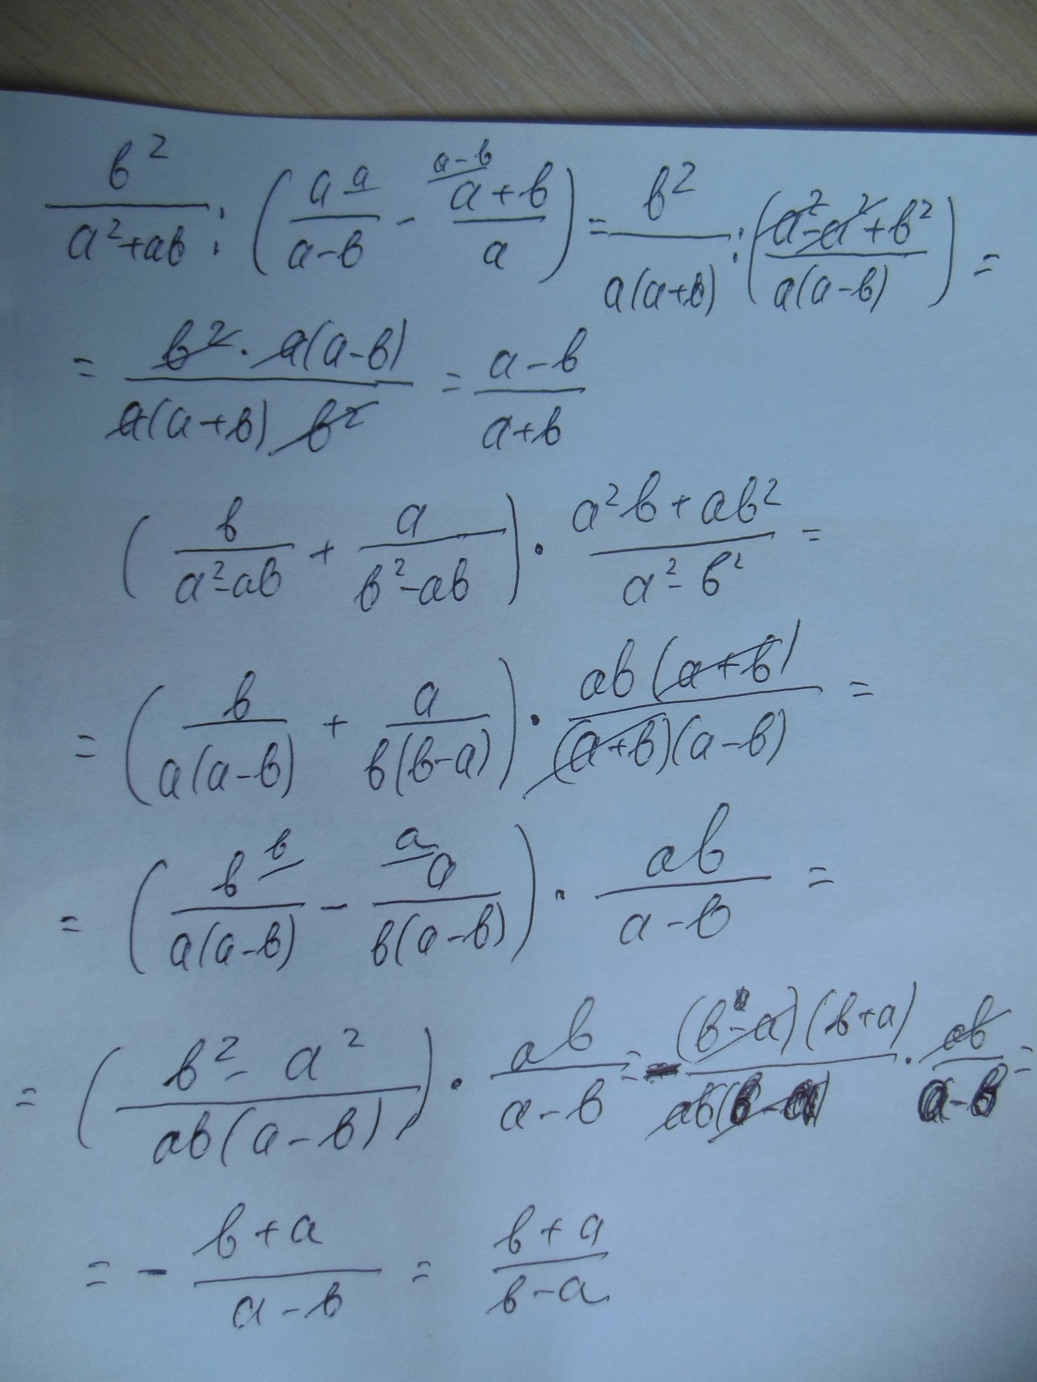 b²/(a²+ab) : (a a/(a-b) - a-b (a+b)/a) = b²/(a(a+b)) : ((a²-a²+b²)/(a(a-b))) =
= (b² · a(a-b))/(a(a+b) b²) = (a-b)/(a+b)
(b/(a²-ab) + a/(b²-ab)) · (a²b+ab²)/(a²-b²) =
= (b/(a(a-b)) + a/(b(b-a))) · (ab(a+b))/((a+b)(a-b)) =
= (b b/(a(a-b)) - a a/(b(a-b))) · ab/(a-b) =
= ((b²-a²)/(ab(a-b))) · ab/(a-b) = - ((b-a)(b+a))/(ab(b-a)) · ab/(a-b) =
= - (b+a)/(a-b) = (b+a)/(b-a)